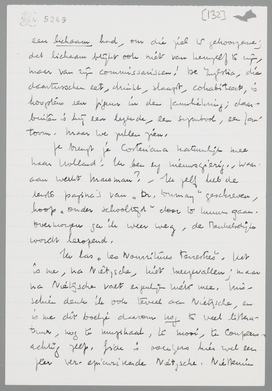 5269
[132]
een lichaam had, om die ziel te gehoorzamen;
dat lichaam blijkt ook niet van hemzelf te zijn,
maar van zijn commissarissen! De
daartusschen eet, drinkt, slaapt, cohabiteert, is
hoogstens een figuur in den familiekring; daar-
buiten is hij een legende, een symbool, een fan-
toom. Maar we zullen zien.
Je brengt je Costeriana natuurlijk mee
naar Holland! Ik ben erg nieuwsgierig. Waar-
aan werkt Mauranc? - Ik zelf heb de
eerste pagina's van „Dr. Dumay" geschreven,
hoop „onder schooltijd" door te kunnen gaan.
Overmorgen ga ik weer weg, de
wordt heropend.
Ik las, les Nourritures Terrestres. Het
is me, na Nietzsche, niet meegevallen; maar
na Nietzsche valt eigenlijk niets mee. Mis-
schien denk ik ook teveel aan Nietzsche, en
is me dit boekje daarom nog te veel litera-
tuur, nog te
achtig zelf. Gide is overigens hier wel een
zeer ver-epicuriseerde Nietzsche. Niettemin